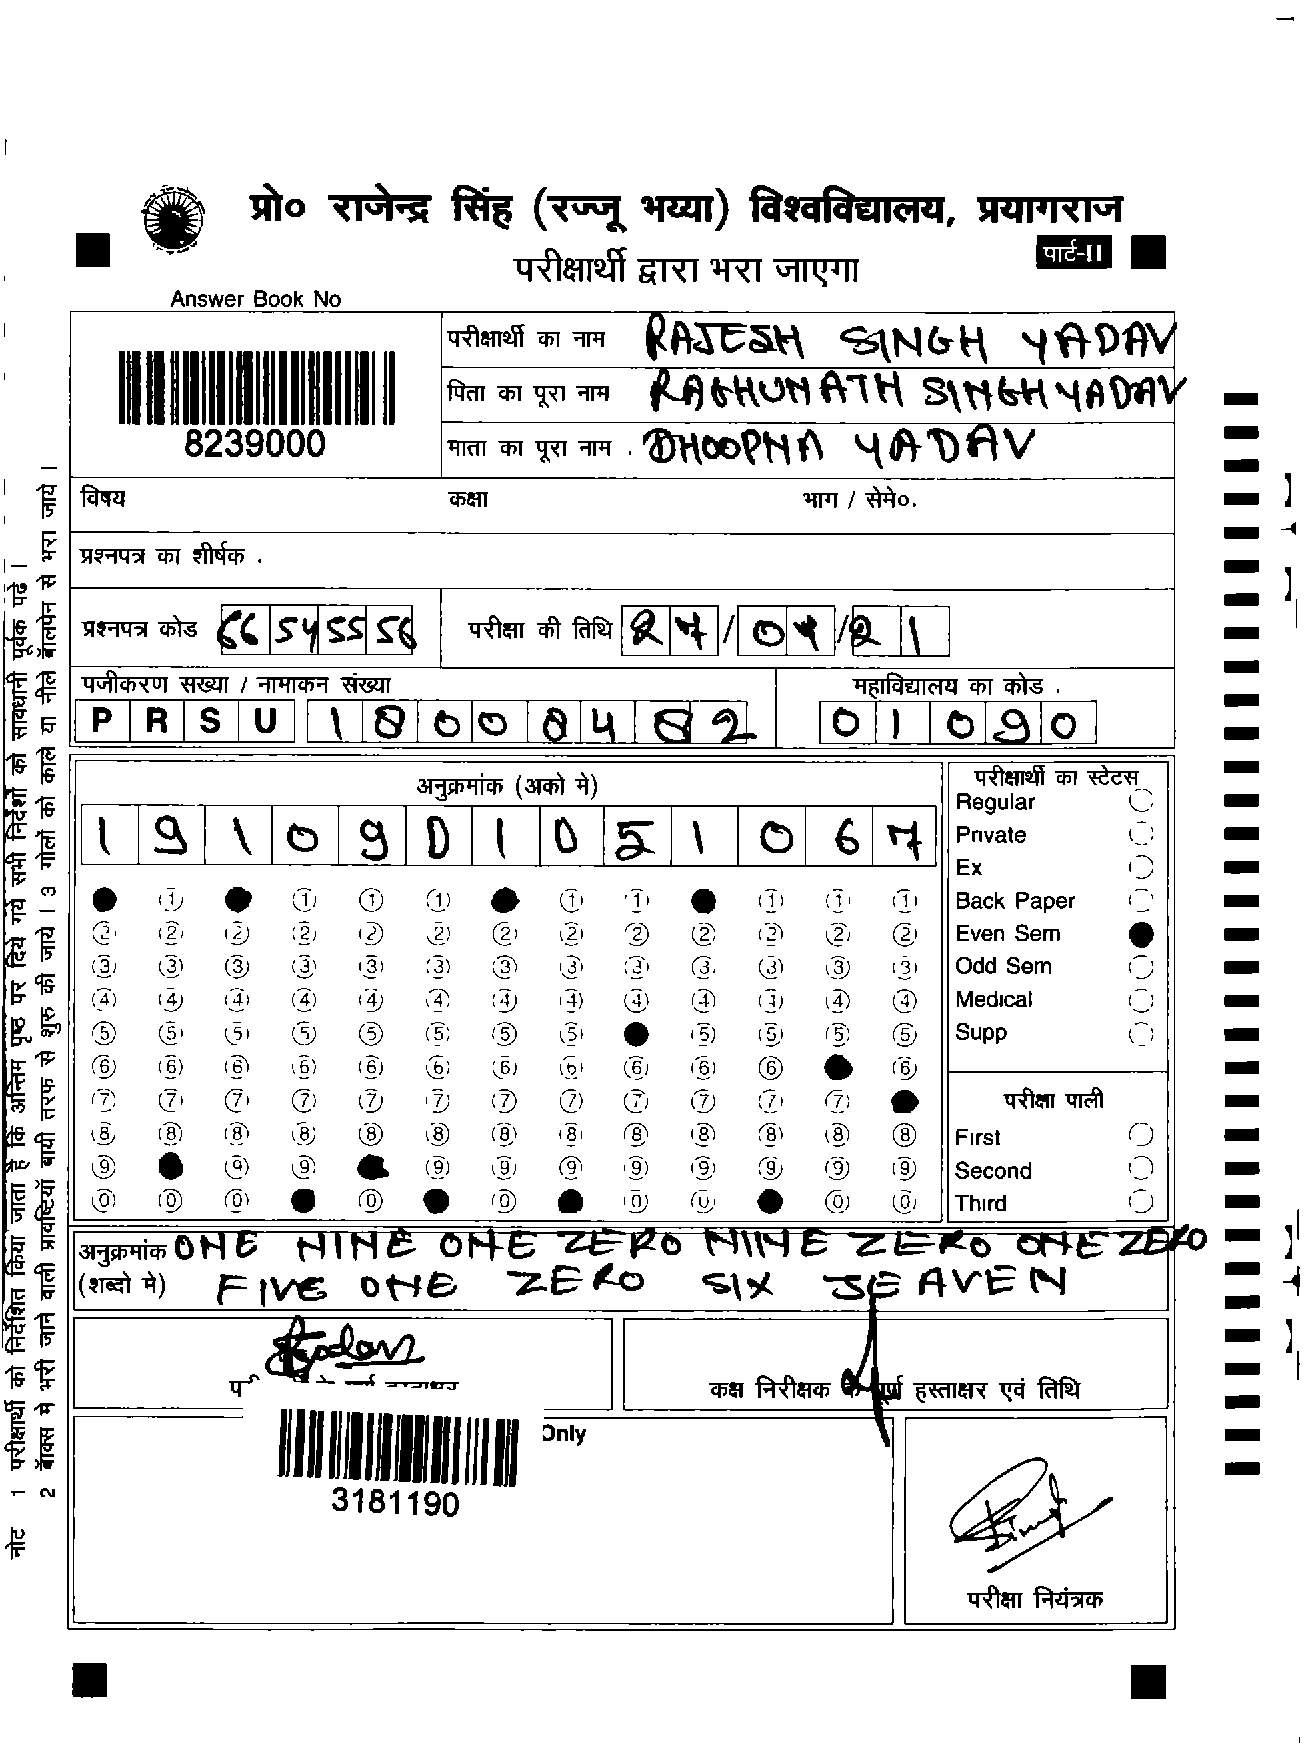 प्रो० राजेन्द्र सिंह (रज्जू भय्या) विश्वविद्यालय, प्रयागराज
परीक्षार्थी द्वारा भरा जाएगा
पार्ट-II
Answer Book No
8239000
परीक्षार्थी का नाम RAJESH SINGH YADAV
पिता का पूरा नाम RAGHUNATH SINGH YADAV
माता का पूरा नाम . DHOOPNA YADAV
विषय कक्षा भाग / सेमे०.
प्रश्नपत्र का शीर्षक .
प्रश्नपत्र कोड परीक्षा की तिथि 27/04/21
पजीकरण सख्या / नामाकन संख्या महाविद्यालय का कोड .
PRSU 01090
अनुक्रमांक (अको मे)
1910901051067
1 1 1 1 1 1 1 1 1
2 2 2 2 2 2 2 2 2 2 2 2 2
3 3 3 3 3 3 3 3 3 3 3 3 3
4 4 4 4 4 4 4 4 4 4 4 4 4
5 5 5 5 5 5 5 5 5 5 5 5
6 6 6 6 6 6 6 6 6 6 6 6
7 7 7 7 7 7 7 7 7 7 7 7
8 8 8 8 8 8 8 8 8 8 8 8 8
9 9 9 9 9 9 9 9 9 9 9
0 0 0 0 0 0 0 0 0
परीक्षार्थी का स्टेटस
Regular
Private
Ex
Back Paper
Even Sem
Odd Sem
Medical
Supp
परीक्षा पाली
First
Second
Third
अनुक्रमांक ONE NINE ONE ZERO NINE ZERO ONE ZERO
(शब्दो मे) FIVE ONE ZERO SIX SEAVEN
कक्ष निरीक्षक के पूर्ण हस्ताक्षर एवं तिथि
Only
3181190
परीक्षा नियंत्रक
नोट 1 परीक्षार्थी को निर्देशित किया जाता है कि अन्तिम पृष्ठ पर दिये गये सभी निर्देशों को सावधानी पूर्वक पढें।
2 बॉक्स मे भरी जाने वाली प्रावष्टियों बायी तरफ से शुरु की जाये। 3 गोलों को काले या नीले बॉलपेन से भरा जाये।